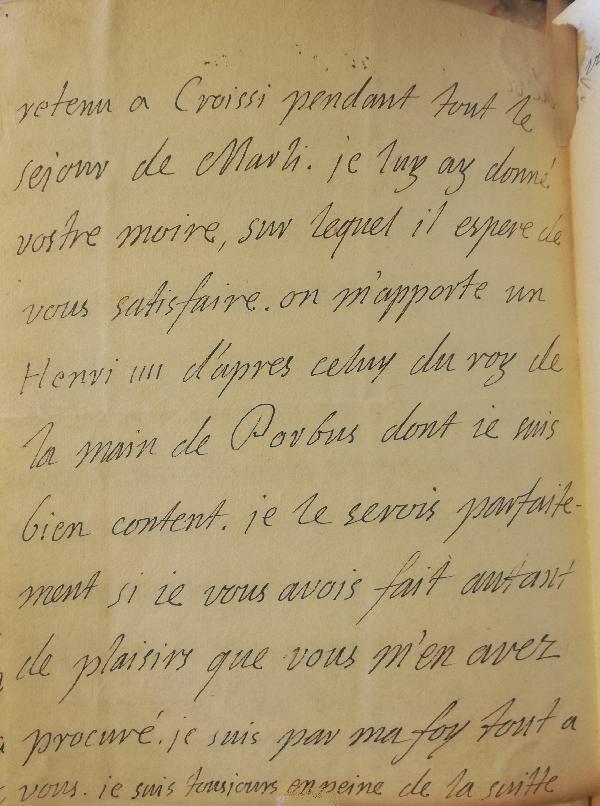 retenu a Croissi pendant tout le
sejour de Marli. je luy ay donné
vostre moire, sur lequel il espere de
vous satisfaire. on m'apporte un
Henri IIII d'apres celuy du roy de
la main de Porbus dont ie suis
bien content. je le serois parfaite-
ment si ie vous avois fait autant
de plaisirs que vous m'en avez
procuré. je suis par ma foy tout a
vous. ie suis tousjours en peine de la suitte